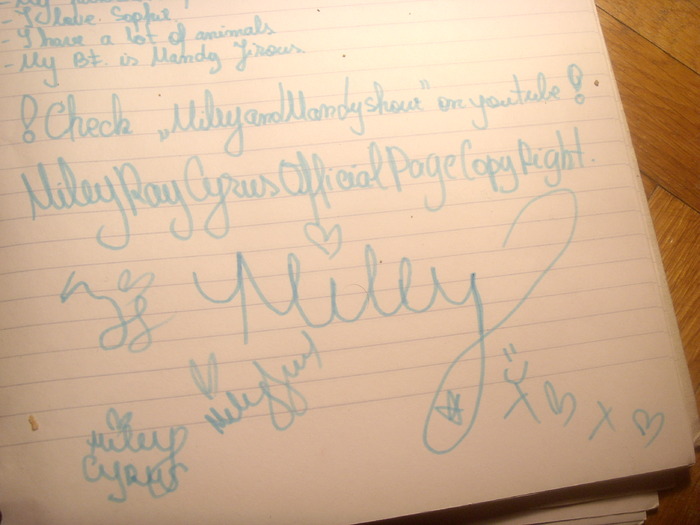 - I love Sophie.
- I have a lot of animals
- My Bf. is Mandy Jirous
! Check „MileyandMandyshow" on youtube!
MileyRayCyrus Official Page CopyRight.
Miley
Miley
Miley
Cyrus
X X